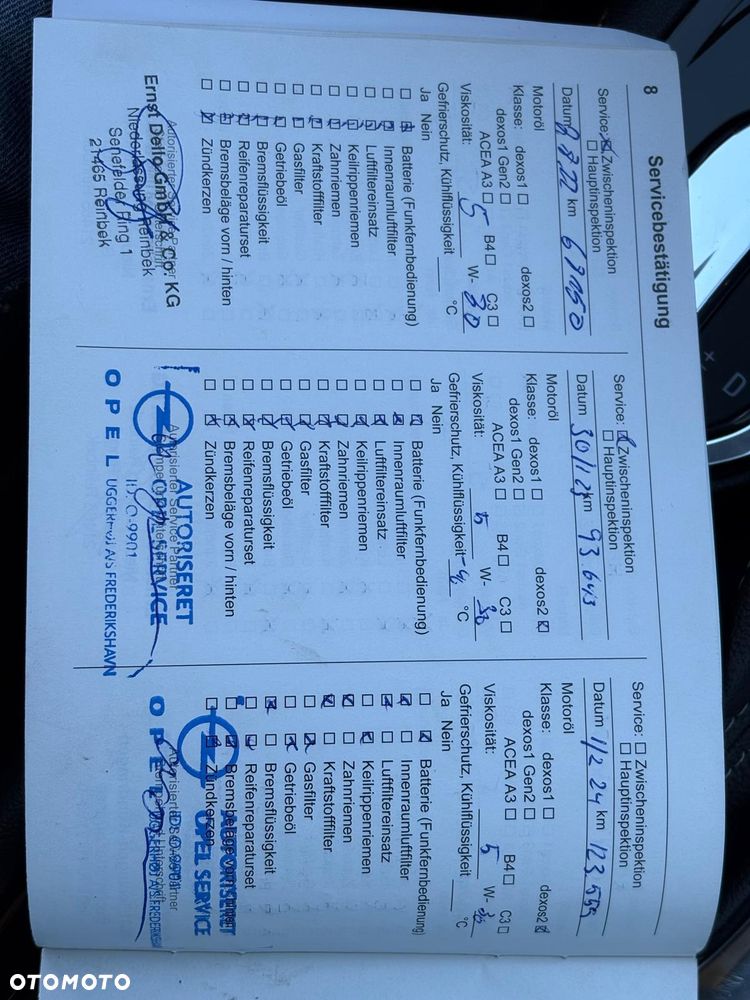 8
Servicebestätigung
Service: ☒ Zwischeninspektion
☐ Hauptinspektion
Datum 8.8.22 km 69150
Motoröl
Klasse: dexos1 ☐ dexos2 ☐
dexos1 Gen2 ☐
ACEA A3 ☐ B4 ☐ C3 ☐
Viskosität: 5 W- 30
Gefrierschutz, Kühlflüssigkeit °C
Ja Nein
Batterie (Funkfernbedienung)
Innenraumluftfilter
Luftfiltereinsatz
Keilrippenriemen
Zahnriemen
Kraftstofffilter
Gasfilter
Getriebeöl
Bremsflüssigkeit
Reifenreparaturset
Bremsbeläge vorn / hinten
Zündkerzen
Autorisierter Service Partner
Ernst Dello GmbH & Co. KG
Niederlassung Reinbek
Senefelder Ring 1
21465 Reinbek
Service: ☒ Zwischeninspektion
☐ Hauptinspektion
Datum 30/1 23 km 93.643
Motoröl
Klasse: dexos1 ☐ dexos2 ☒
dexos1 Gen2 ☐
ACEA A3 ☐ B4 ☐ C3 ☐
Viskosität: 5 W- 30
Gefrierschutz, Kühlflüssigkeit °C
Ja Nein
Batterie (Funkfernbedienung)
Innenraumluftfilter
Luftfiltereinsatz
Keilrippenriemen
Zahnriemen
Kraftstofffilter
Gasfilter
Getriebeöl
Bremsflüssigkeit
Reifenreparaturset
Bremsbeläge vorn / hinten
Zündkerzen
AUTORISERET
Autorisierter Service Partner
OPEL SERVICE
OPEL
A/S FREDERIKSHAVN
Service: ☐ Zwischeninspektion
☐ Hauptinspektion
Datum 1/2 24 km 123.555
Motoröl
Klasse: dexos1 ☐ dexos2 ☒
dexos1 Gen2 ☐
ACEA A3 ☐ B4 ☐ C3 ☐
Viskosität: 5 W- 30
Gefrierschutz, Kühlflüssigkeit °C
Ja Nein
Batterie (Funkfernbedienung)
Innenraumluftfilter
Luftfiltereinsatz
Keilrippenriemen
Zahnriemen
Kraftstofffilter
Gasfilter
Getriebeöl
Bremsflüssigkeit
Reifenreparaturset
Bremsbeläge vorn / hinten
Zündkerzen
AUTORISERET
OPEL SERVICE
OPEL
D
OTOMOTO